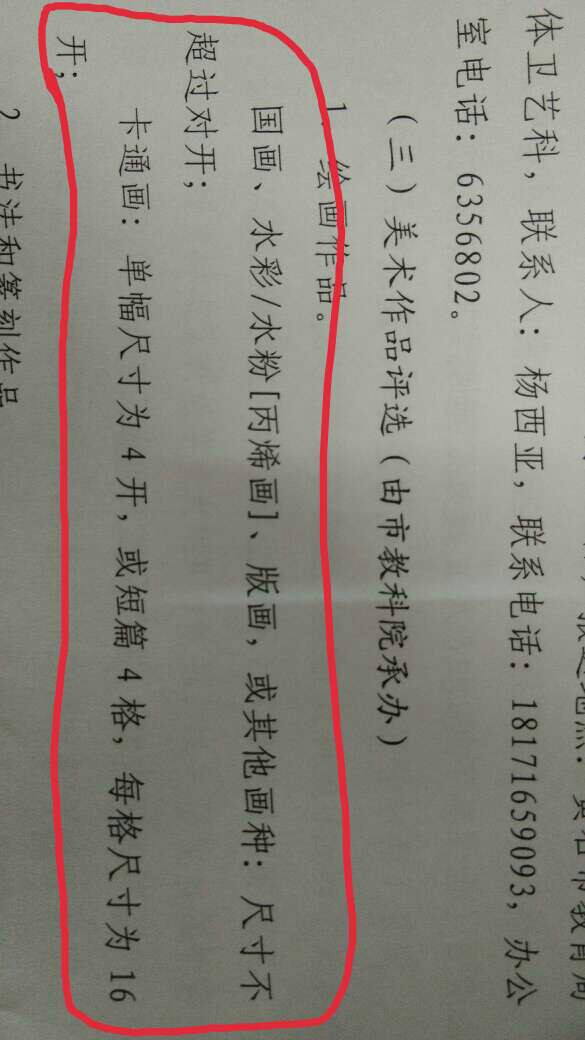 体卫艺科，联系人：杨西亚，联系电话：18171659093，办公
室电话：6356802。
（三）美术作品评选（由市教科院承办）
1．绘画作品。
国画、水彩/水粉[丙烯画]、版画，或其他画种：尺寸不
超过对开；
卡通画：单幅尺寸为 4 开，或短篇 4 格，每格尺寸为 16
开；
2．书法和篆刻作品